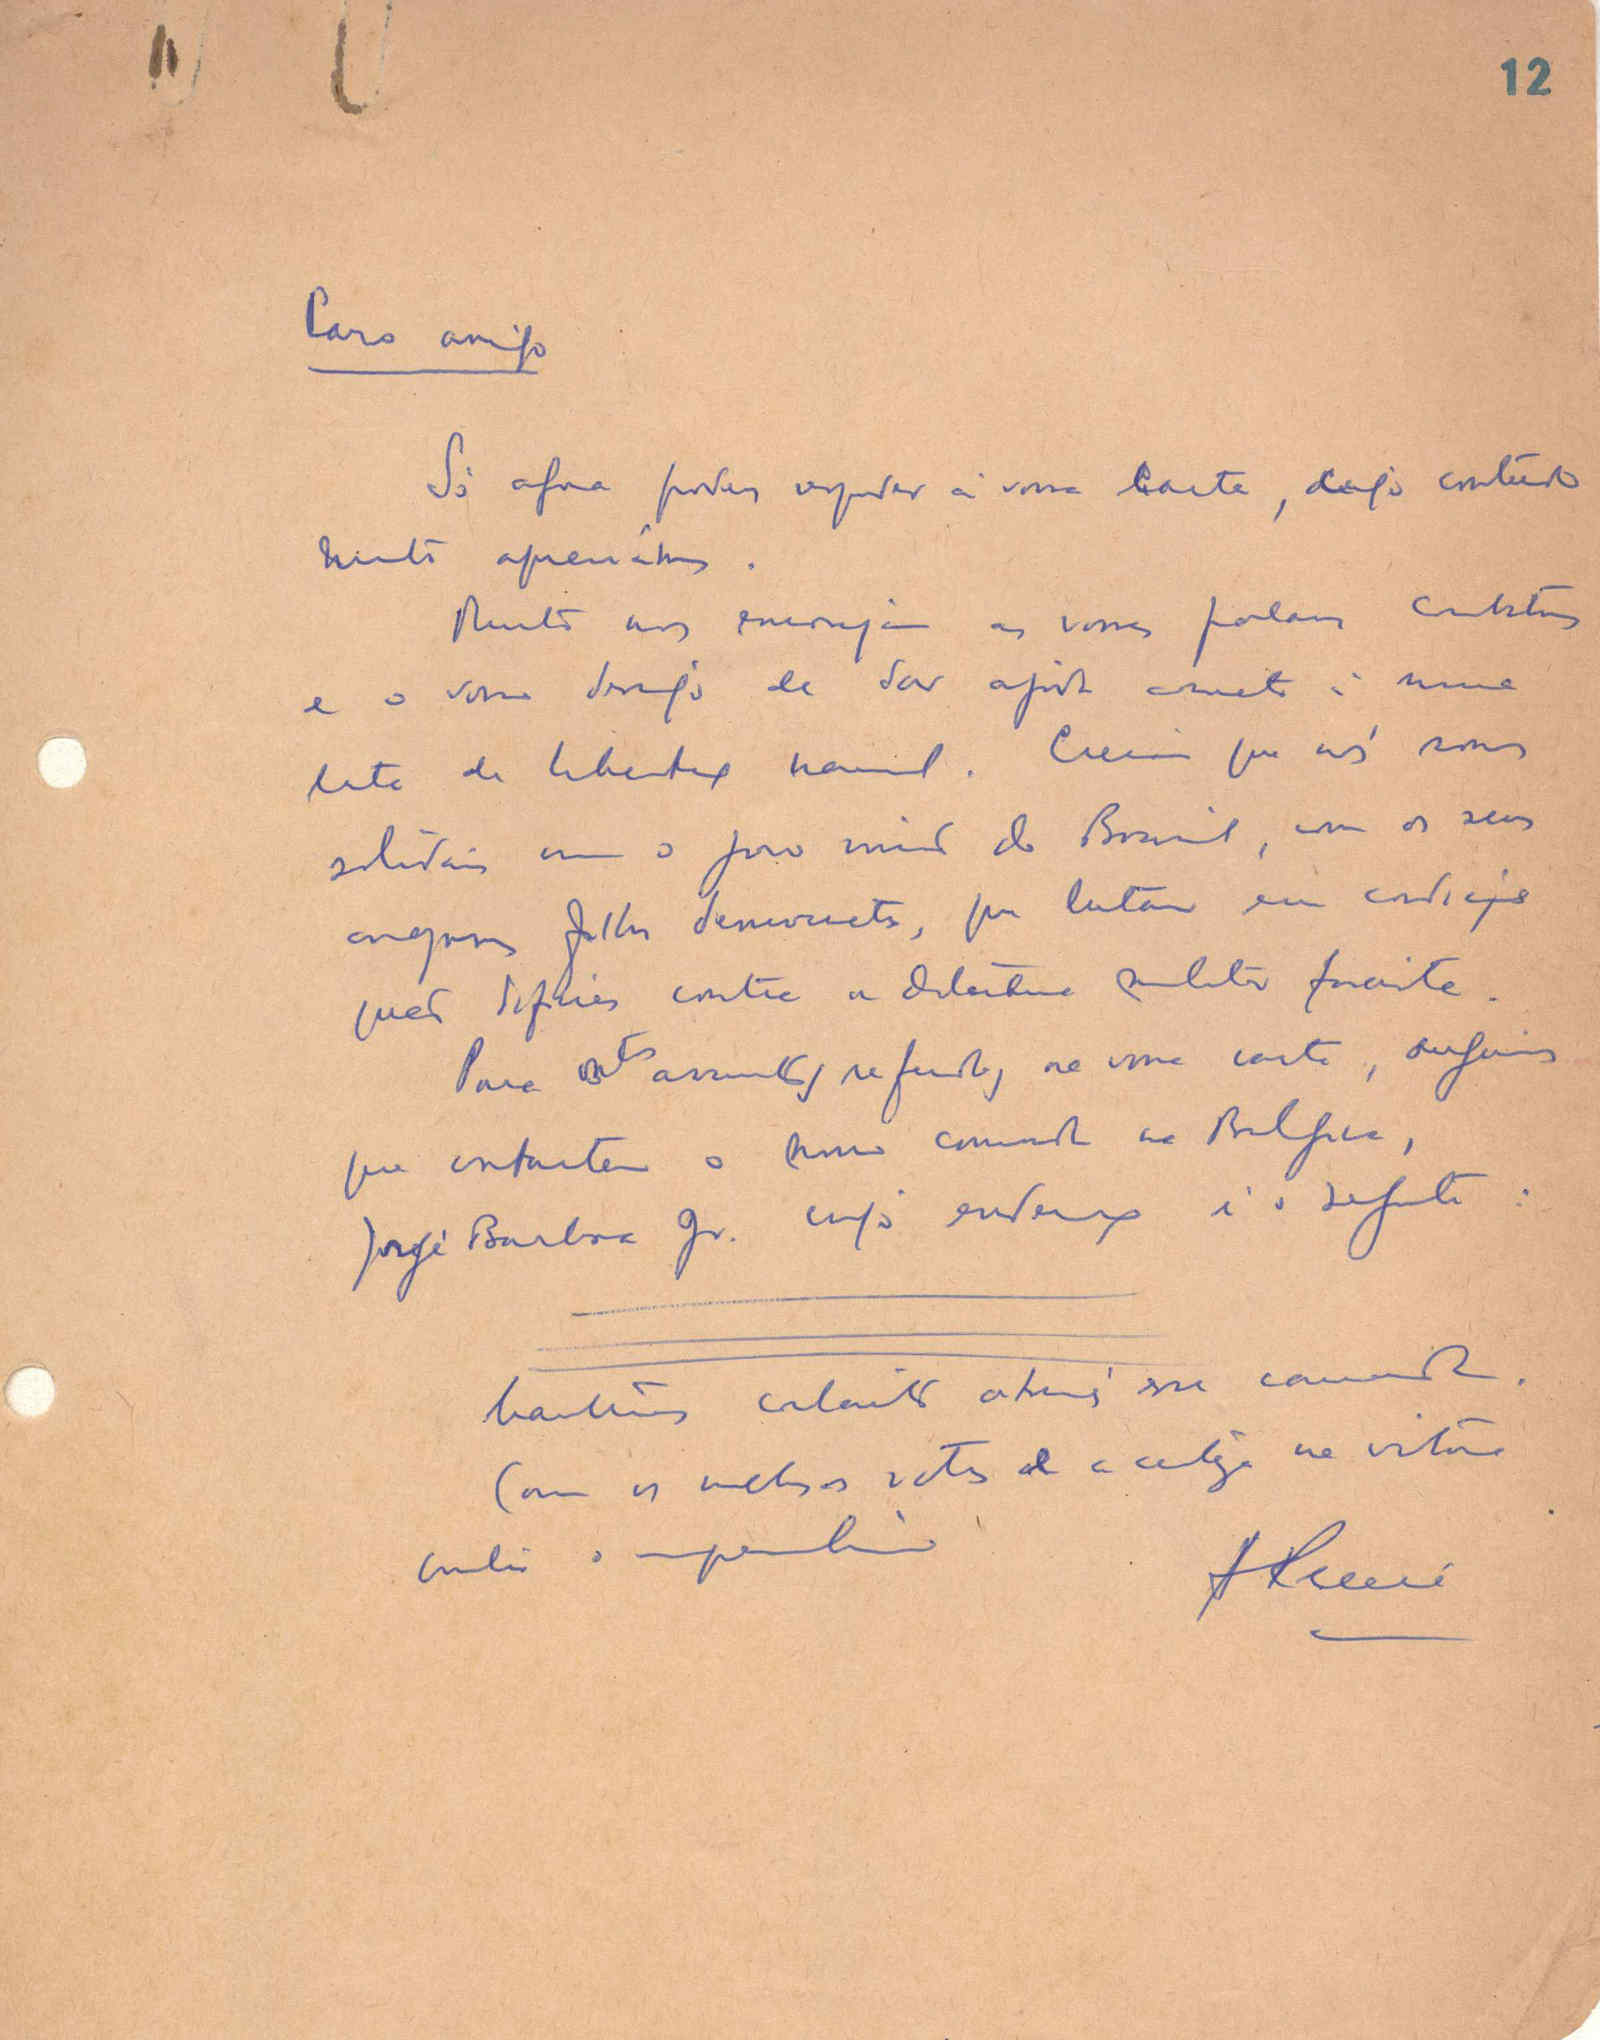 12
Caro amigo
Só agora podemos responder à vossa carta, cujo conteúdo
muito apreciámos.
Muito nos encorajam as vossas palavras
e o vosso desejo de dar ajuda concreta à nossa
luta de libertação nacional. Creiam que nós somos
solidários com o povo irmão do Brasil, com os seus
corajosos filhos democratas, que lutam em condições
difíceis contra a ditadura militar fascista.
Para assuntos referidos na vossa carta, sugerimos
que contactem o nosso camarada na Bélgica,
Jorge Barbosa Jr. cujo endereço é o seguinte:
contacto através esse camarada.
Com os melhores votos de e a certeza na vitória
contra o imperialismo